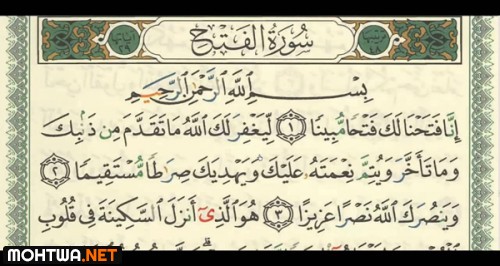 سُورَةُ الْفَتْحِ
بِسْمِ اللَّهِ الرَّحْمَٰنِ الرَّحِيمِ
إِنَّا فَتَحْنَا لَكَ فَتْحًا مُّبِينًا ١ لِّيَغْفِرَ لَكَ اللَّهُ مَا تَقَدَّمَ مِن ذَنۢبِكَ
وَمَا تَأَخَّرَ وَيُتِمَّ نِعْمَتَهُ عَلَيْكَ وَيَهْدِيَكَ صِرَاطًا مُّسْتَقِيمًا ٢
وَيَنصُرَكَ اللَّهُ نَصْرًا عَزِيزًا ٣ هُوَ الَّذِي أَنزَلَ السَّكِينَةَ فِي قُلُوبِ
MOHTWA.NET